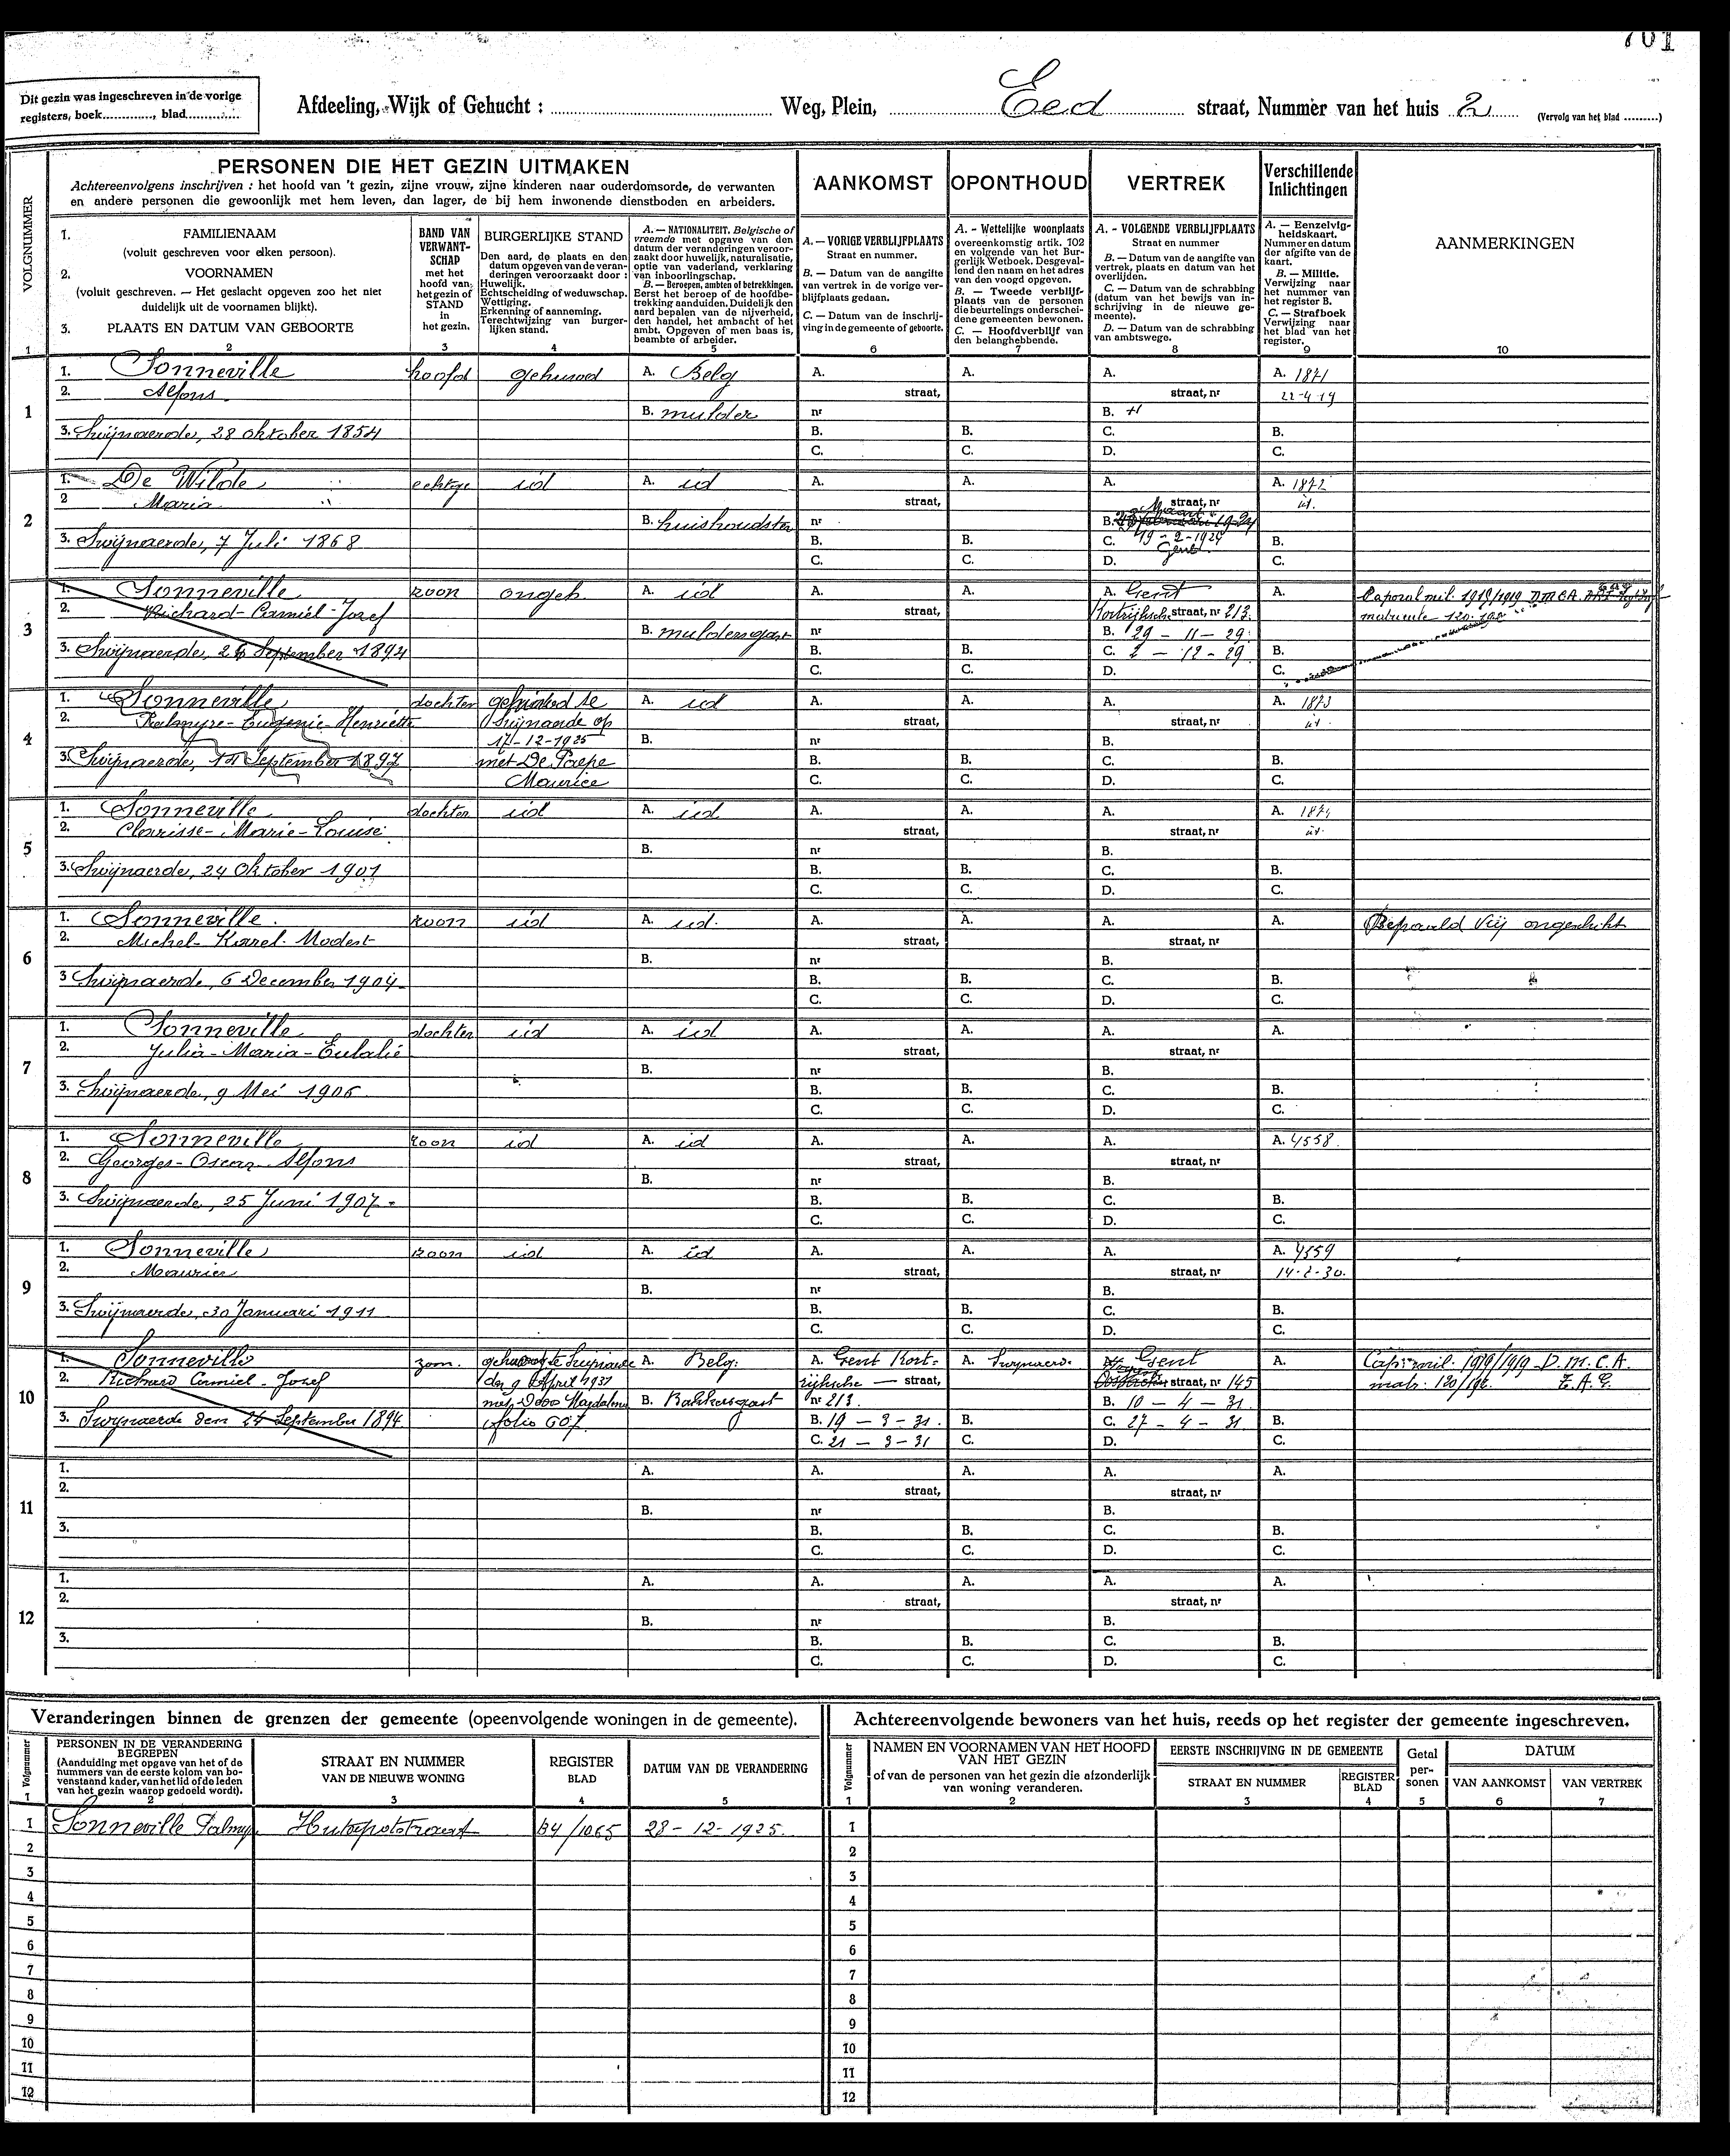 701
Dit gezin was ingeschreven in de vorige
registers, boek............, blad..............
Afdeeling, Wijk of Gehucht : ........ Weg, Plein, Eed straat, Nummer van het huis 2 (Vervolg van het blad .........)
PERSONEN DIE HET GEZIN UITMAKEN
Achtereenvolgens inschrijven : het hoofd van 't gezin, zijne vrouw, zijne kinderen naar ouderdomsorde, de verwanten
en andere personen die gewoonlijk met hem leven, dan lager, de bij hem inwonende dienstboden en arbeiders.
AANKOMST
OPONTHOUD
VERTREK
Verschillende
Inlichtingen
VOLGNUMMER
1. FAMILIENAAM
(voluit geschreven voor elken persoon).
2. VOORNAMEN
(voluit geschreven. — Het geslacht opgeven zoo het niet
duidelijk uit de voornamen blijkt).
3. PLAATS EN DATUM VAN GEBOORTE
BAND VAN
VERWANT-
SCHAP
met het
hoofd van
het gezin of
STAND
in
het gezin.
BURGERLIJKE STAND
Den aard, de plaats en den
datum opgeven van de veran-
deringen veroorzaakt door :
Huwelijk.
Echtscheiding of weduwschap.
Wettiging.
Erkenning of aanneming.
Terechtwijzing van burger-
lijken stand.
A. — NATIONALITEIT. Belgische of
vreemde met opgave van den
datum der veranderingen veroor-
zaakt door huwelijk, naturalisatie,
optie van vaderland, verklaring
van inboorlingschap.
B. — Beroepen, ambten of betrekkingen.
Eerst het beroep of de hoofdbe-
trekking aanduiden. Duidelijk den
aard bepalen van de nijverheid,
den handel, het ambacht of het
ambt. Opgeven of men baas is,
beambte of arbeider.
A. — VORIGE VERBLIJFPLAATS
Straat en nummer.
B. — Datum van de aangifte
van vertrek in de vorige ver-
blijfplaats gedaan.
C. — Datum van de inschrij-
ving in de gemeente of geboorte.
A. - Wettelijke woonplaats
overeenkomstig artik. 102
en volgende van het Bur-
gerlijk Wetboek. Desgeval-
lend den naam en het adres
van den voogd opgeven.
B. — Tweede verblijf-
plaats van de personen
die beurtelings onderschei-
dene gemeenten bewonen.
C. — Hoofdverblijf van
den belanghebbende.
A. - VOLGENDE VERBLIJFPLAATS
Straat en nummer
B. — Datum van de aangifte van
vertrek, plaats en datum van het
overlijden.
C. — Datum van de schrabbing
(datum van het bewijs van in-
schrijving in de nieuwe ge-
meente).
D. — Datum van de schrabbing
van ambtswege.
A. — Eenzelvig-
heidskaart.
Nummer en datum
der afgifte van de
kaart.
B. — Militie.
Verwijzing naar
het nummer van
het register B.
C. — Strafboek
Verwijzing naar
het blad van het
register.
AANMERKINGEN
1 2 3 4 5 6 7 8 9 10
1
1. Sonneville hoofd gehuwd A. Belg A. A. A. A. 1871
2. Alfons straat, straat, nr 22-4-19
B. mulder nr B.
3. Swijnaerde, 28 oktober 1854 B. B. C. B.
C. C. D. C.
2
1. De Wilde echtge id A. id A. A. A. A. 1872
2 Maria straat, straat, nr id.
B. huishoudster nr B. Maart 1924
3. Swijnaerde, 7 Juli 1868 B. B. C. 19-2-1924 B.
C. C. D. Gent C.
3
1. Sonneville zoon ongeh. A. id A. A. A. Gent A. Caporal mil. 1919/1919 D.M.C.A.
2. Richard-Camiel-Jozef straat, Kortrijksche straat, nr 213. matricule 120.
B. muldersgast nr B. 29 - 11 - 29.
3. Swijnaerde, 24 September 1894 B. B. C. 2 - 12 - 29 B.
C. C. D. C.
4
1. Sonneville dochter gehuwd te A. id A. A. A. A. 1873
2. Palmyre-Eugenie-Henriette Swijnaerde op straat, straat, nr id.
17-12-1925 B. nr B.
3. Swijnaerde, September 1897 met De Paepe B. B. C. B.
Maurice C. C. D. C.
5
1. Sonneville dochter id A. id A. A. A. A. 1874
2. Clarisse-Marie-Louise straat, straat, nr id.
B. nr B.
3. Swijnaerde, 24 Oktober 1901 B. B. C. B.
C. C. D. C.
6
1. Sonneville. zoon id A. id. A. A. A. A. Bepaald Vrij ongeschikt
2. Michel-Karel-Modest straat, straat, nr
B. nr B.
3 Swijnaerde, 6 December 1904 B. B. C. B.
C. C. D. C.
7
1. Sonneville dochter id A. id A. A. A. A.
2. Julia-Maria-Eulalie straat, straat, nr
B. nr B.
3. Swijnaerde, 9 Mei 1906 B. B. C. B.
C. C. D. C.
8
1. Sonneville zoon id A. id A. A. A. A. 4558
2. Georges-Oscar-Alfons straat, straat, nr
B. nr B.
3. Swijnaerde, 25 Juni 1907 B. B. C. B.
C. C. D. C.
9
1. Sonneville zoon id A. id A. A. A. A. 4559
2. Maurice straat, straat, nr 14-2-30.
B. nr B.
3. Swijnaerde, 30 Januari 1911 B. B. C. B.
C. C. D. C.
10
1. Sonneville zoon. gehuwd te Swijnaerde A. Belg. A. Gent Kort- A. Swynaerde A. Gent A. Cap: mil. 1919/1919 D.M.C.A.
2. Richard Camiel-Jozef den 9 April 1931 rijksche — straat, straat, nr 145 matr: 120/ Z.A.G.
met Magdalena B. Bakkersgast nr 213. B. 10 - 4 - 31
3. Swynaerde den 24 September 1894. folio 607. B. 19 - 3 - 31. B. C. 27 - 4 - 31 B.
C. 21 - 3 - 31 C. D. C.
11
1. A. A. A. A. A.
2. straat, straat, nr
B. nr B.
3. B. B. C. B.
C. C. D. C.
12
1. A. A. A. A. A.
2. straat, straat, nr
B. nr B.
3. B. B. C. B.
C. C. D. C.
Veranderingen binnen de grenzen der gemeente (opeenvolgende woningen in de gemeente).
Volgnummer
PERSONEN IN DE VERANDERING
BEGREPEN
(Aanduiding met opgave van het of de
nummers van de eerste kolom van bo-
venstaand kader, van het lid of de leden
van het gezin waarop gedoeld wordt).
STRAAT EN NUMMER
VAN DE NIEUWE WONING
REGISTER
BLAD
DATUM VAN DE VERANDERING
1 2 3 4 5
1 Sonneville Palmyr Hutsepotstraat B4/1065 28-12-1925.
2
3
4
5
6
7
8
9
10
11
12
Achtereenvolgende bewoners van het huis, reeds op het register der gemeente ingeschreven.
Volgnummer
NAMEN EN VOORNAMEN VAN HET HOOFD
VAN HET GEZIN
of van de personen van het gezin die afzonderlijk
van woning veranderen.
EERSTE INSCHRIJVING IN DE GEMEENTE
STRAAT EN NUMMER
REGISTER
BLAD
Getal
per-
sonen
DATUM
VAN AANKOMST
VAN VERTREK
1 2 3 4 5 6 7
1
2
3
4
5
6
7
8
9
10
11
12